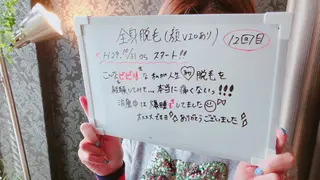 全身脱毛(顔VIOあり)
12回目
H29.10/31 から スタート!!
こんなビビリな私が人生初脱毛を
経験してみて…本当に痛くないっ!!!
治療中は爆睡してました
ありがとうございました